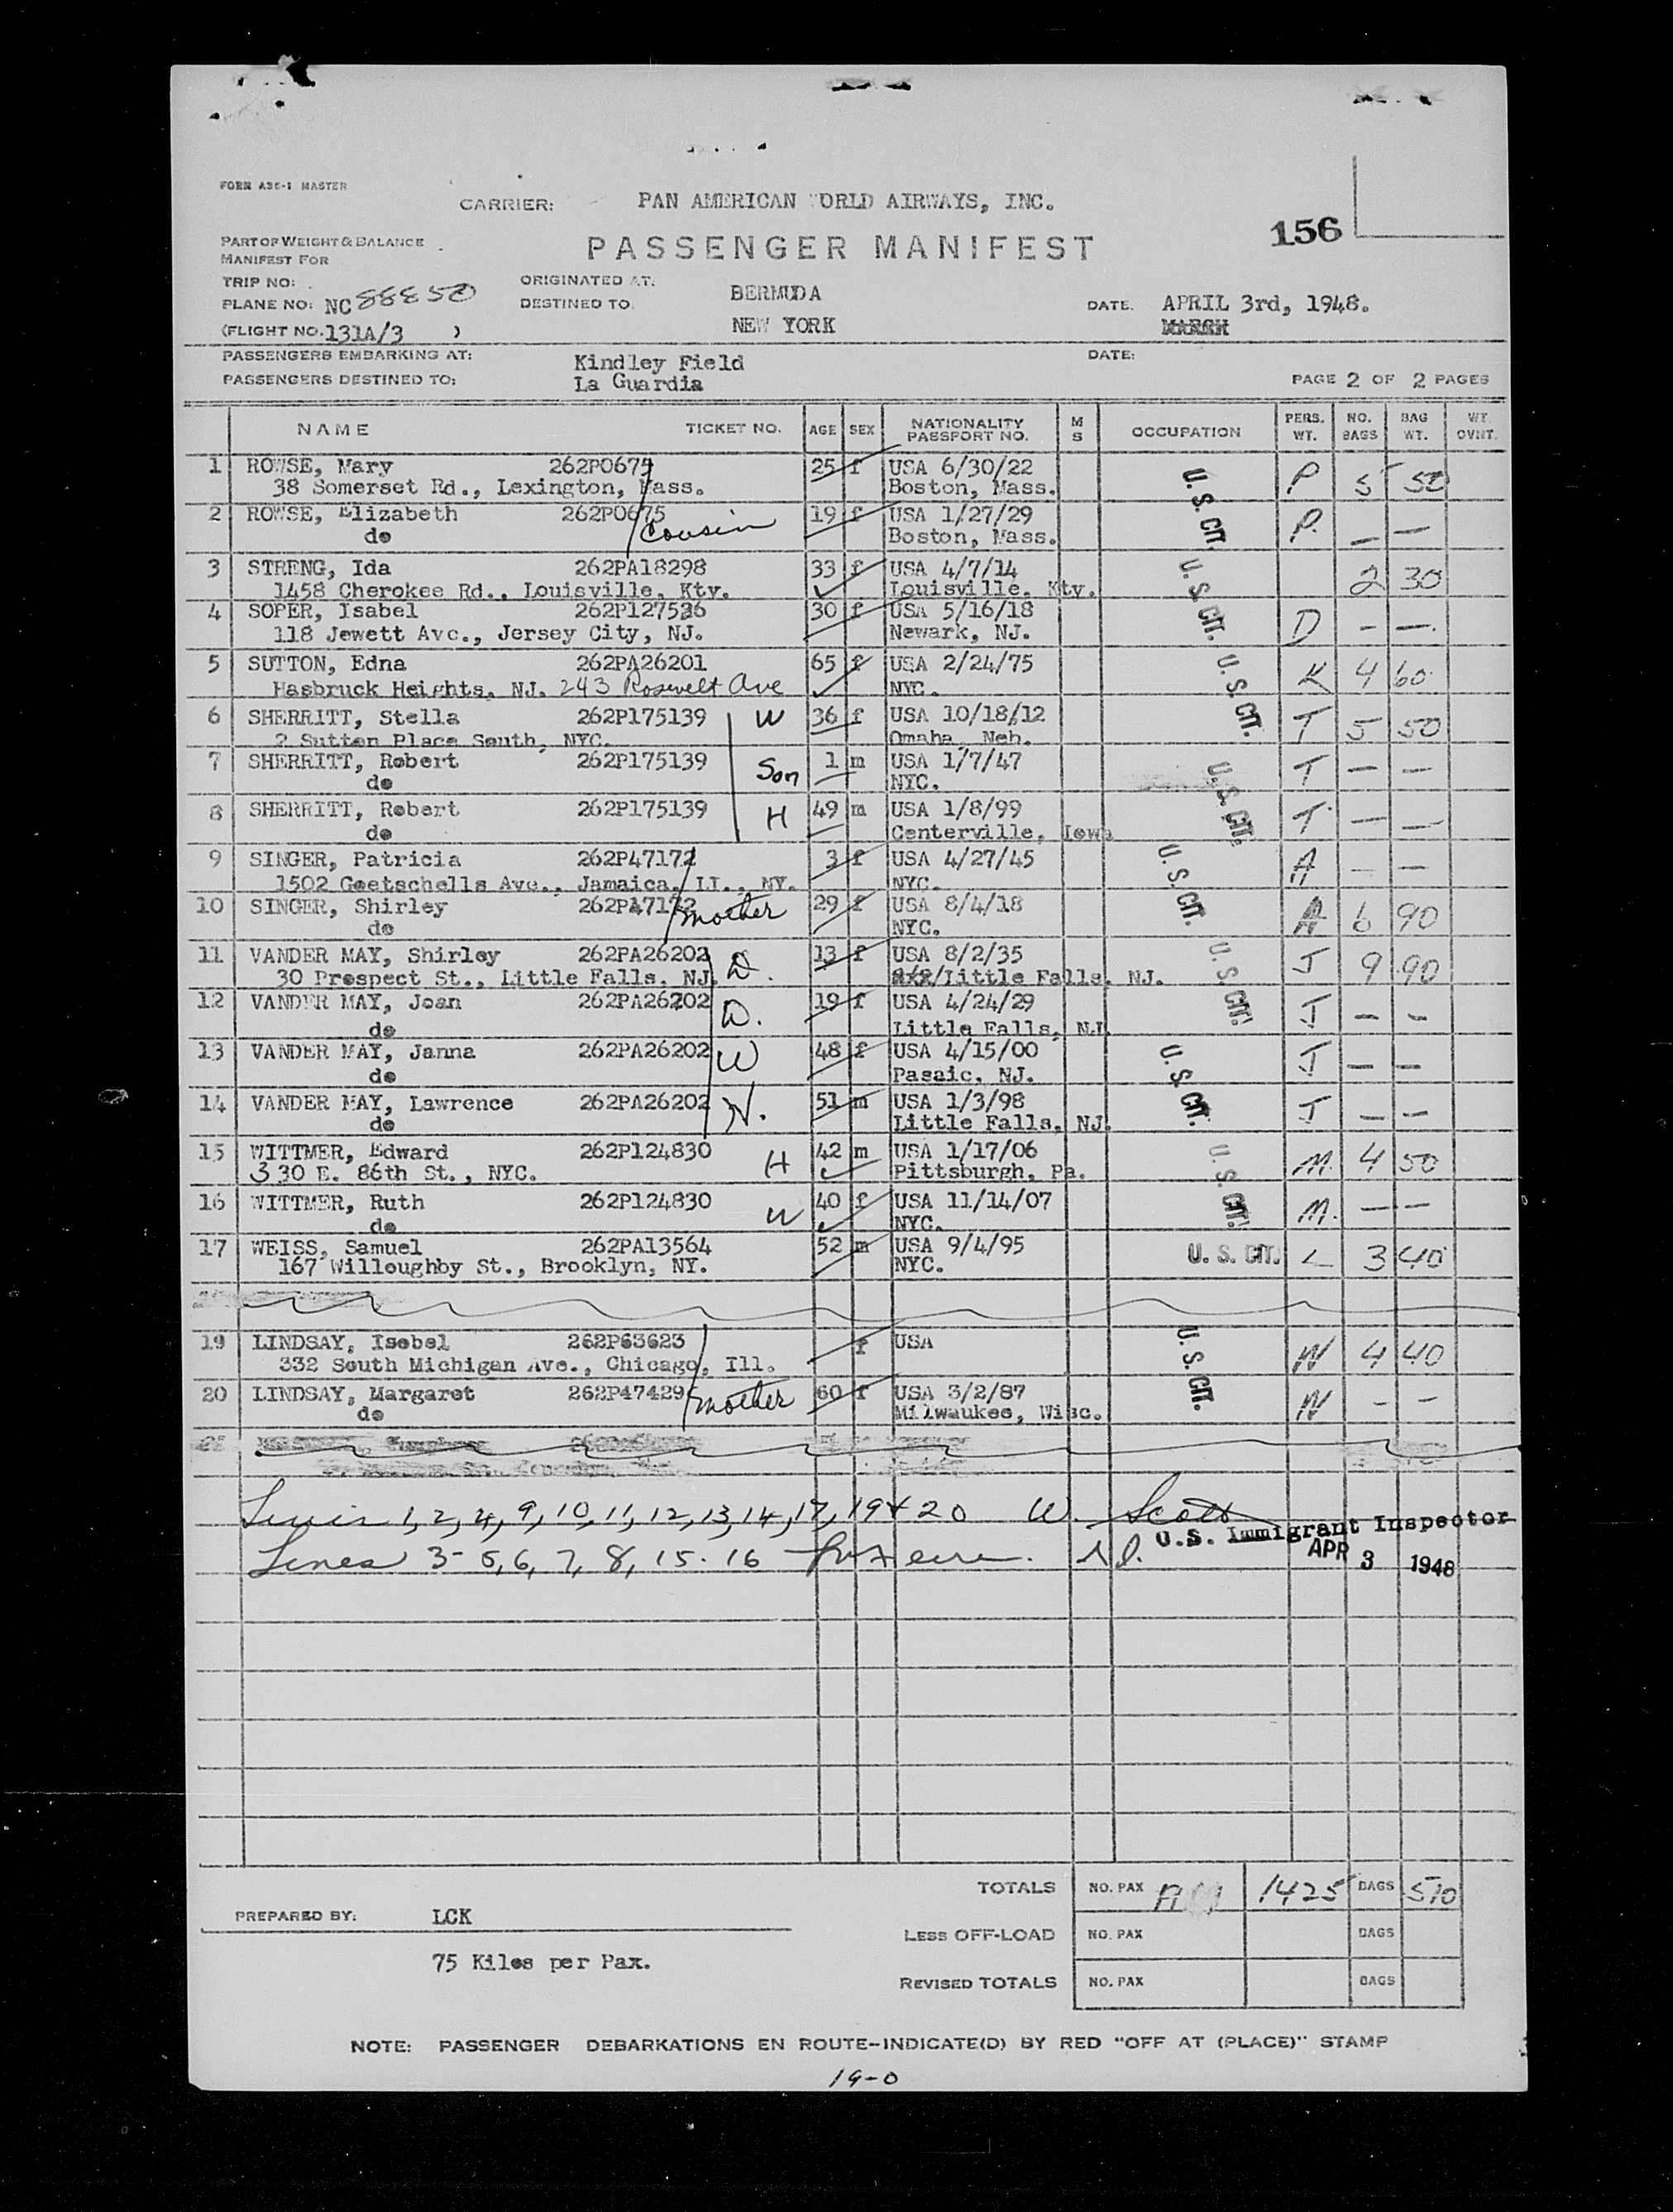 FORM A36-1 MASTER
CARRIER: PAN AMERICAN WORLD AIRWAYS, INC.
156
PART OF WEIGHT & BALANCE
MANIFEST FOR
PASSENGER MANIFEST
TRIP NO:
ORIGINATED AT. BERMUDA
PLANE NO: NC 88850
DESTINED TO. NEW YORK
DATE. APRIL 3rd, 1948.
MARCH
(FLIGHT NO. 131A/3 )
PASSENGERS EMBARKING AT: Kindley Field DATE:
PASSENGERS DESTINED TO: La Guardia PAGE 2 OF 2 PAGES
NAME TICKET NO. AGE SEX NATIONALITY PASSPORT NO. M S OCCUPATION PERS. WT. NO. BAGS BAG WT. WT. OVNT.
1 ROWSE, Mary 262P0674 25 f USA 6/30/22 U. S. CIT. P 5 50
38 Somerset Rd., Lexington, Mass. Boston, Mass.
2 ROWSE, Elizabeth 262P0675 cousin 19 f USA 1/27/29 P. — —
do Boston, Mass.
3 STRENG, Ida 262PA18298 33 f USA 4/7/14 U. S. CIT. 2 30
1458 Cherokee Rd., Louisville, Kty. Louisville, Kty.
4 SOPER, Isabel 262P127526 30 f USA 5/16/18 D — —.
118 Jewett Ave., Jersey City, NJ. Newark, NJ.
5 SUTTON, Edna 262PA26201 65 f USA 2/24/75 U. S. CIT. K 4 60
Hasbruck Heights, NJ. 243 Rosevelt Ave NYC.
6 SHERRITT, Stella 262P175139 W 36 f USA 10/18/12 T 5 50
2 Sutton Place South, NYC. Omaha, Neb.
7 SHERRITT, Robert 262P175139 Son 1 m USA 1/7/47 U. S. CIT. T — —
do NYC.
8 SHERRITT, Robert 262P175139 H 49 m USA 1/8/99 T — —
do Centerville, Iowa
9 SINGER, Patricia 262P47172 3 f USA 4/27/45 U. S. CIT. A — —
1502 Goetschells Ave., Jamaica, LI., NY. NYC.
10 SINGER, Shirley 262P47172 mother 29 f USA 8/4/18 A 6 90
do NYC.
11 VANDER MAY, Shirley 262PA26202 D. 13 f USA 8/2/35 U. S. CIT. J 9 90
30 Prospect St., Little Falls, NJ. Little Falls, NJ.
12 VANDER MAY, Joan 262PA26202 D. 19 f USA 4/24/29 J — —
do Little Falls, NJ
13 VANDER MAY, Janna 262PA26202 W 48 f USA 4/15/00 U. S. CIT. J — —
do Pasaic, NJ.
14 VANDER MAY, Lawrence 262PA26202 H. 51 m USA 1/3/98 J — —
do Little Falls, NJ.
15 WITTMER, Edward 262P124830 H 42 m USA 1/17/06 U. S. CIT. M. 4 50
330 E. 86th St., NYC. Pittsburgh, Pa.
16 WITTMER, Ruth 262P124830 W 40 f USA 11/14/07 M. — —
do NYC.
17 WEISS, Samuel 262PA13564 52 m USA 9/4/95 U. S. CIT. L 3 40
167 Willoughby St., Brooklyn, NY. NYC.
19 LINDSAY, Isobel 262P63623 f USA U. S. CIT. N 4 40
332 South Michigan Ave., Chicago, Ill.
20 LINDSAY, Margaret 262P47429 mother 60 f USA 3/2/87 N — —
do Milwaukee, Wisc.
Lines 1, 2, 4, 9, 10, 11, 12, 13, 14, 17, 19 & 20 W. Scott
U.S. Immigrant Inspector
Lines 3- 5, 6, 7, 8, 15. 16
APR 3 1948
TOTALS NO. PAX 1425 BAGS 510
PREPARED BY: LCK
LESS OFF-LOAD NO. PAX BAGS
75 Kilos per Pax.
REVISED TOTALS NO. PAX BAGS
NOTE: PASSENGER DEBARKATIONS EN ROUTE-INDICATE(D) BY RED "OFF AT (PLACE)" STAMP
19-0